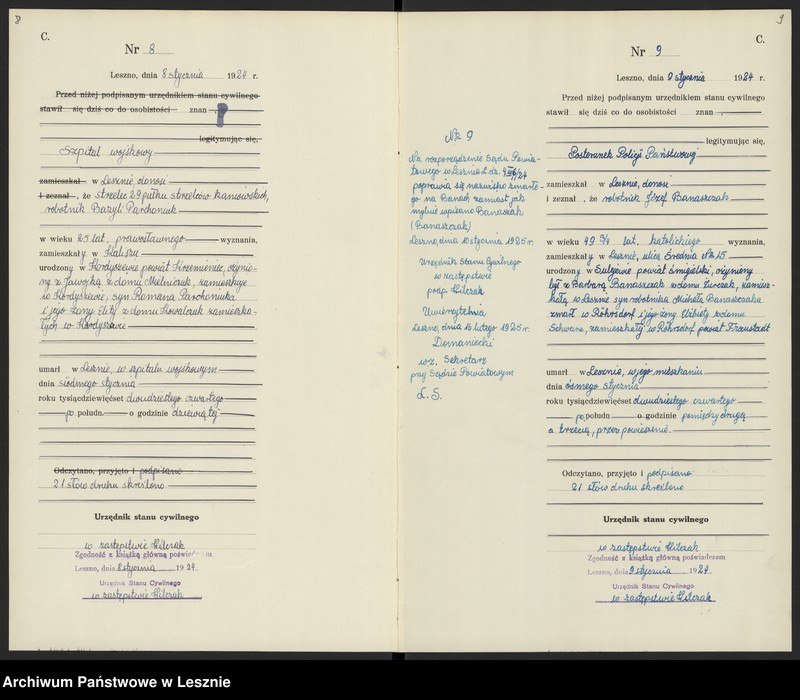 8
C.
Nr 8
Leszno, dnia 8 stycznia 1924 r.
Przed niżej podpisanym urzędnikiem stanu cywilnego
stawił się dziś co do osobistości znan
legitymując się,
Szpital wojskowy
zamieszkał w Lesznie, donosi
i zeznał, że Strzelec 29 pułku Strzelców Kaniowskich,
robotnik Bazyli Parchoniuk
w wieku 25 lat, prawosławnego wyznania,
zamieszkały w Kaliszu
urodzony w Hordyszewie powiat Krzemieniec, ożynio-
ny z Jawojką z domu Melniczak, zamieszkuje
w Hordyszewie, syn Romana Parchoniuka
i jego żony z domu Kowalczuk zamieszka-
łych w Hordyszewie
umarł w Lesznie, w szpitalu wojskowym
dnia siódmego stycznia
roku tysiącdziewięćset dwudziestego czwartego
po połudn. o godzinie dziewiątej
Odczytano, przyjęto i podpisano
21 słów druku skreślono
Urzędnik stanu cywilnego
w zastępstwie Hilczak
Zgodność z książką główną poświadczam
Leszno, dnia 8 stycznia 1924.
Urzędnik Stanu Cywilnego
w zastępstwie Hilczak
Nr. 9
Na rozporządzenie Sądu Powia-
towego w Lesznie L. dz.
poprawia się nazwisko zmarłe-
go na Banach zamiast jak
mylnie wpisano Banaszak
(Banaszczak)
Leszno, dnia 10 stycznia 1925 r.
Urzędnik Stanu Cywilnego
w zastępstwie
podp. Hilczak
Uwierzytelnia
Leszno, dnia 16 lutego 1925 r.
Domaniecki
wz. Sekretarz
przy Sądzie Powiatowym
L. S.
9
C.
Nr 9
Leszno, dnia 9 stycznia 1924 r.
Przed niżej podpisanym urzędnikiem stanu cywilnego
stawił się dziś co do osobistości znan
legitymując się,
Posterunek Policji Państwowej
zamieszkał w Lesznie, donosi
i zeznał, że robotnik Józef Banaszczak
w wieku 49 3/4 lat, katolickiego wyznania,
zamieszkały w Lesznie, ulica Średnia Nr. 15
urodzony w Sulejewie powiat śmigielski, ożyniony
był z Barbarą Banaszczak z domu Ćwiczak, zamiesz-
kałą w Lesznie syn robotnika Michała Banaszczaka
zmarł w Röhrsdorf i jego żony Elżbiety z domu
Schwarz, zamieszkałej w Röhrsdorf powiat Fraustadt
umarł w Lesznie, w jego mieszkaniu
dnia ósmego stycznia
roku tysiącdziewięćset dwudziestego czwartego
po połudn. o godzinie pomiędzy drugą
a trzecią, przez powieszenie.
Odczytano, przyjęto i podpisano
21 słów druku skreślono
Urzędnik stanu cywilnego
w zastępstwie Hilczak
Zgodność z książką główną poświadczam
Leszno, dnia 9 stycznia 1924.
Urzędnik Stanu Cywilnego
w zastępstwie Hilczak
Archiwum Państwowe w Lesznie